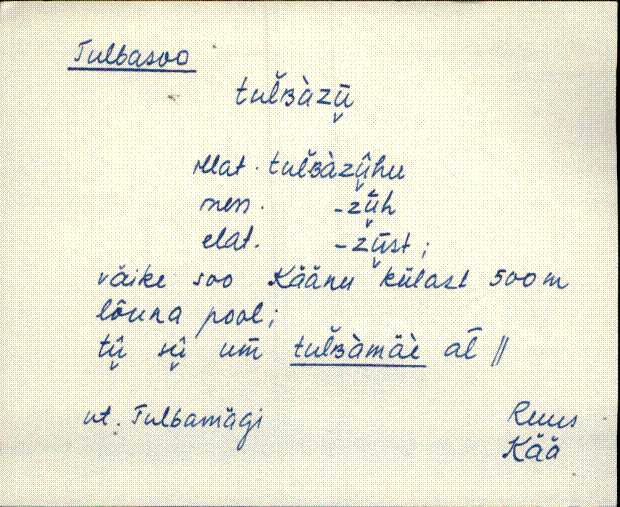 Tulbasoo
tuľʙàzū̬
illat. tuľʙàzû̬hu
iness. -zū̬h
elat. -zū̬st;
väike soo Käänu külast 500 m
lõuna pool;
tû̬ sû̬ um̄ tuľʙàmäè al̄ ||
vt. Tulbamägi
Ruus
Kää